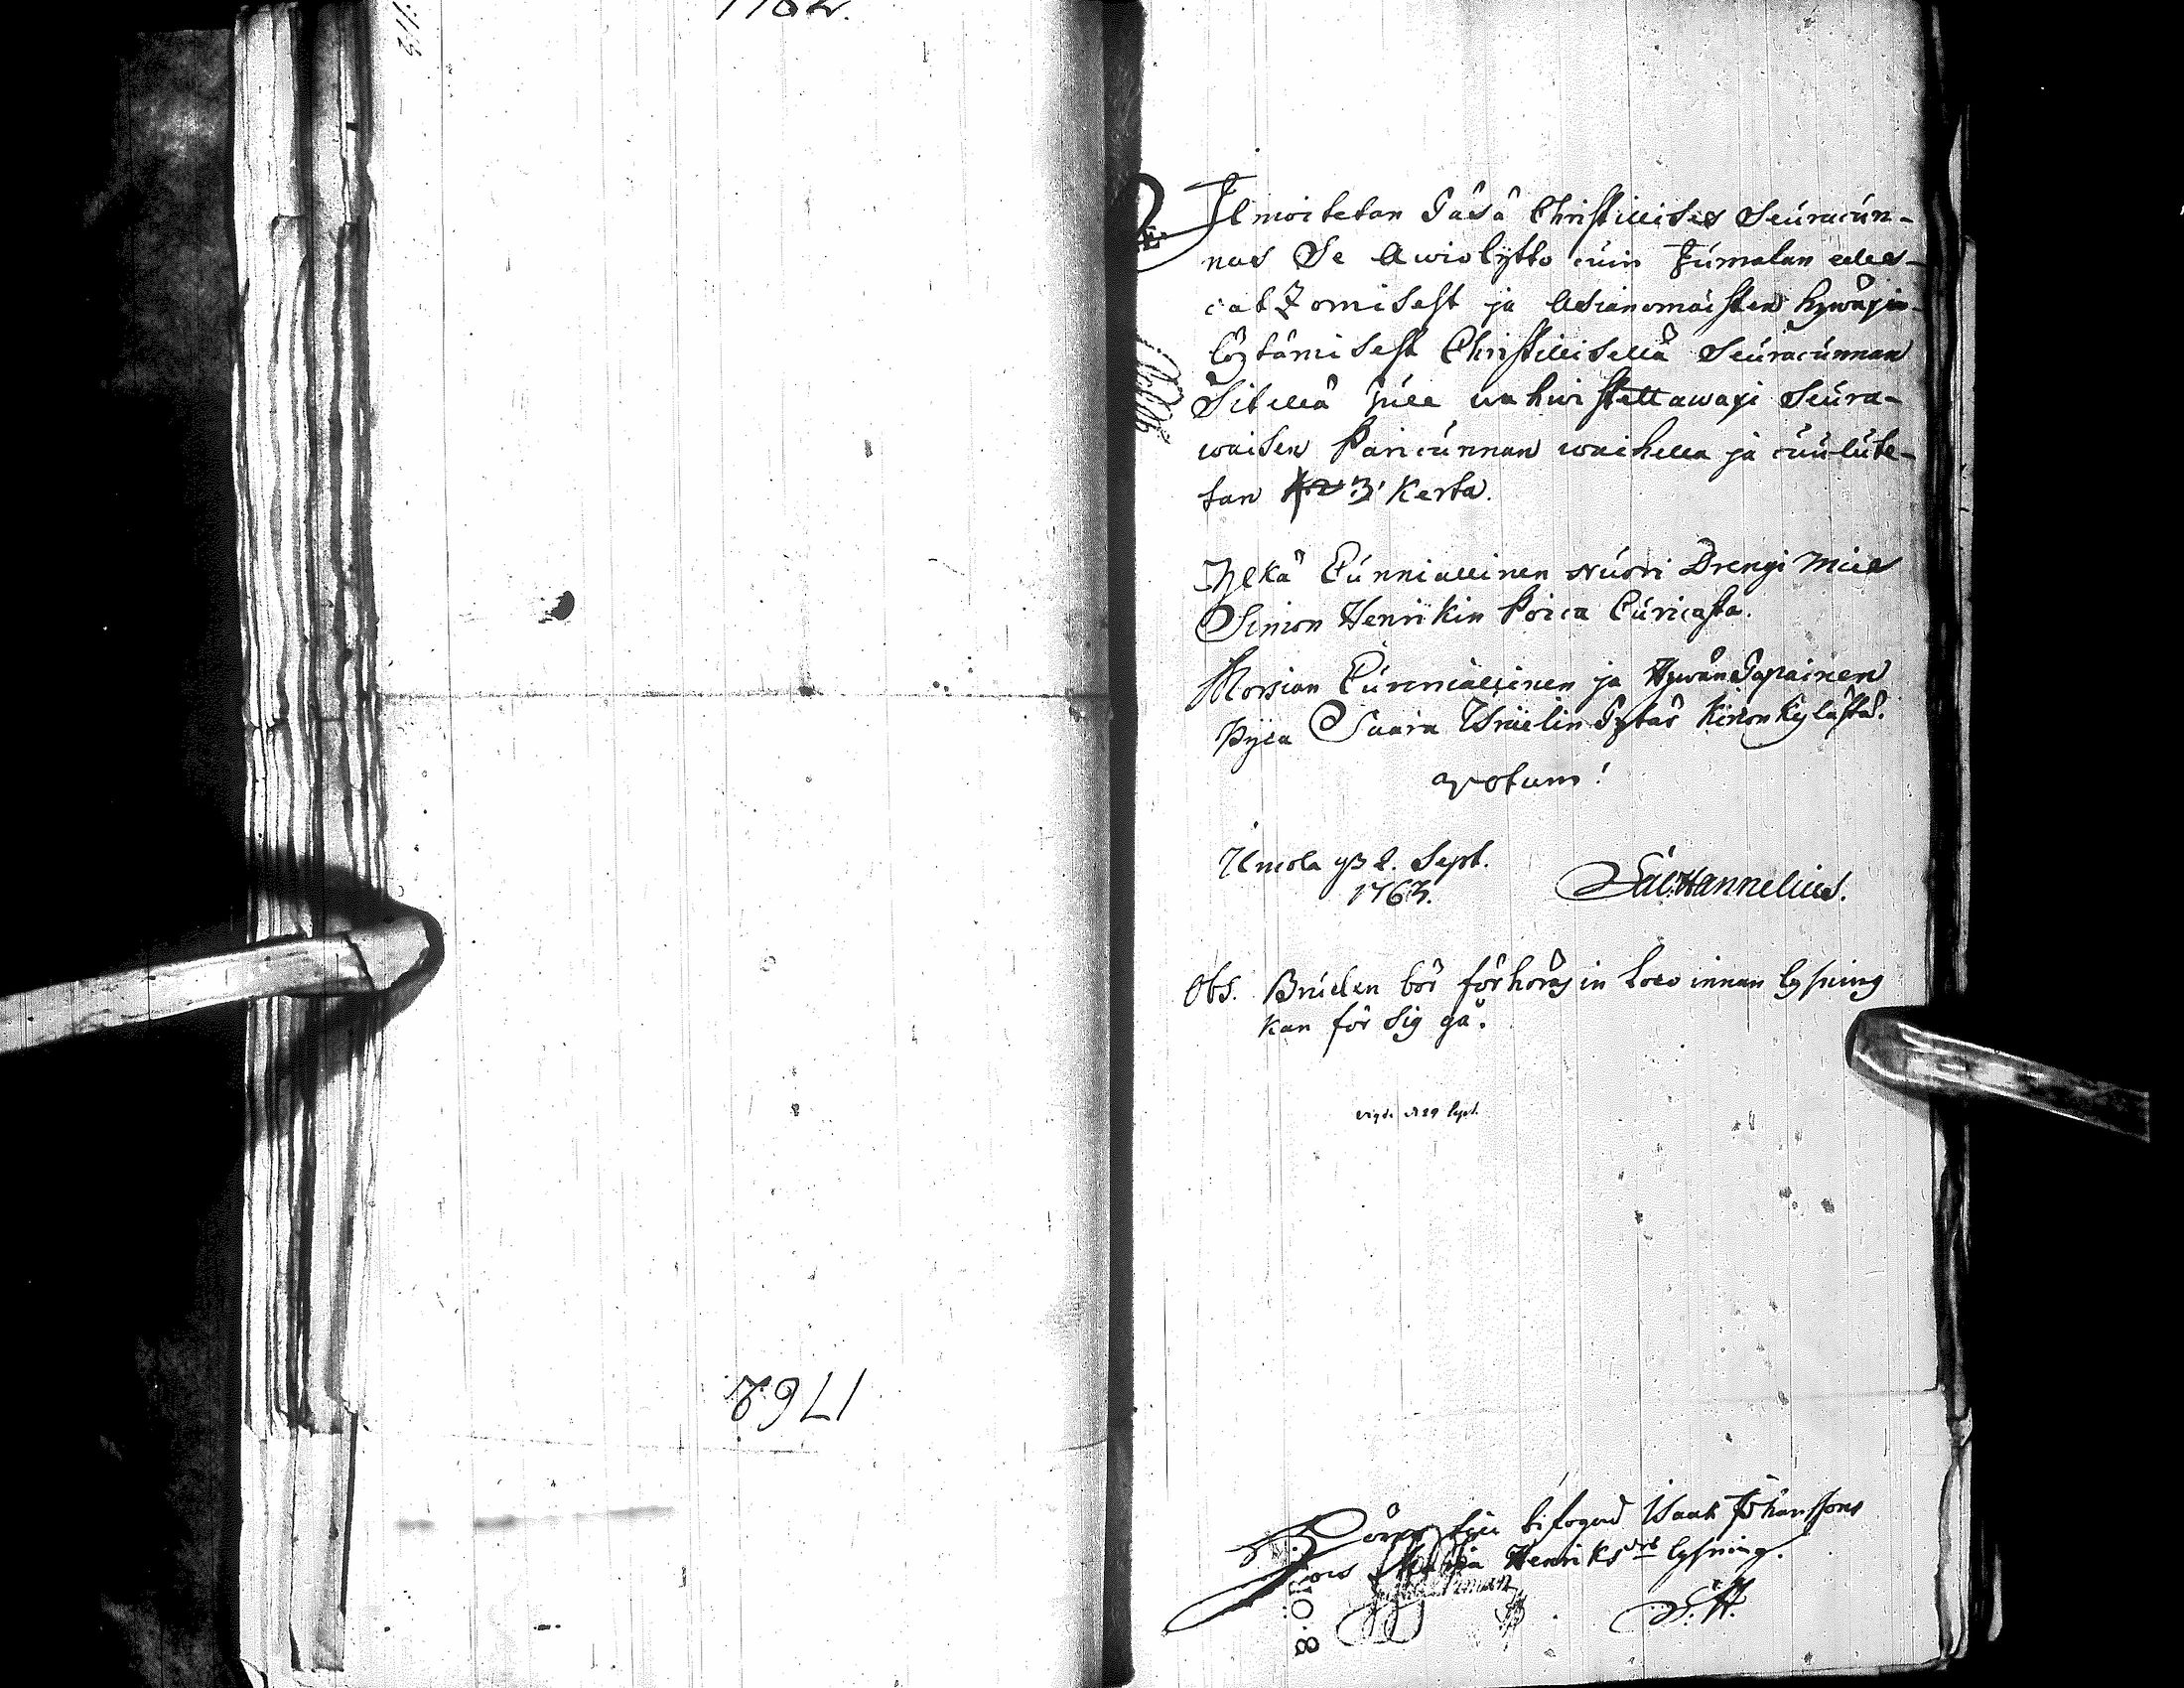 1762.
1762
Ilmoitetan Täsä Christillises Seuracun-
nas Se Awiolijtto cuin Jumalan edes-
catzomisest ja Asianomaisten hywäxi-
löytämisest Christillisellä Seuracunnan
Sitellä tulee wahwistettawaxi Seura-
waisen Paricunnan waihella ja cuulute-
tan 3. Kerta.
Ylkä Cunniallinen nuori Drengi Mies
Simon Henrikin Poica Curicasta.
Morsian Cunniallinen ja Hywän Tapainen
Pijca Saara Israelin Tytär Kinon kylästä.
Votum!
Ilmola 2. Sept.
1763. Hannelius.
Obs. Bruden bör förhöras in Loco innan lysning
kan för Sig gå.
vigde d 29 Sept.
bifogad Isaak Johanssons
Maria Henriks drs lysning.
S. H.